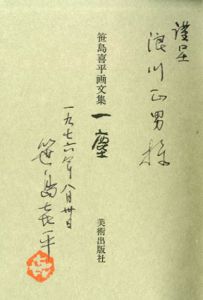 謹呈
浪川正男様
笹島喜平画文集
一塵
一九七六年八月卅日
笹島喜平
美術出版社